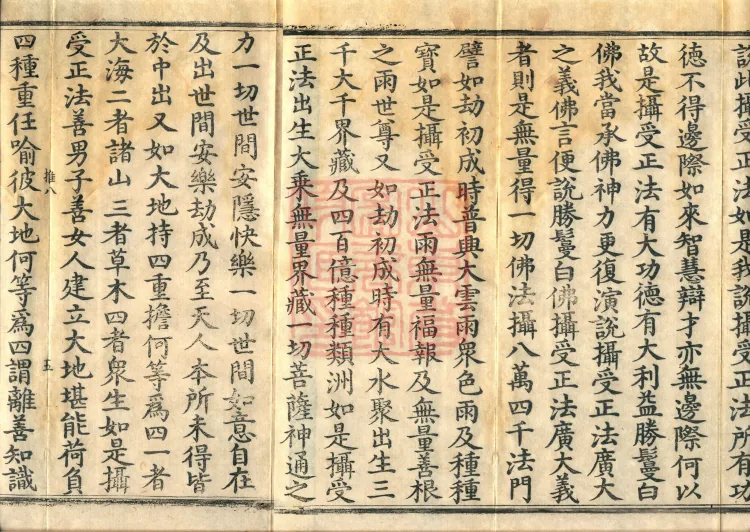 說此攝受正法如是我說攝受正法所有功
德不得邊際如來智慧辯才亦無邊際何以
故是攝受正法有大功德有大利益勝鬘白
佛我當承佛神力更復演說攝受正法廣大
之義佛言便說勝鬘白佛攝受正法廣大義
者則是無量得一切佛法攝八萬四千法門
譬如劫初成時普興大雲雨眾色雨及種種
寶如是攝受正法雨無量福報及無量善根
之雨世尊又如劫初成時有大水聚出生三
千大千界藏及四百億種種類洲如是攝受
正法出生大乘無量界藏一切菩薩神通之
力一切世間安隱快樂一切世間如意自在
及出世間安樂劫成乃至天人本所未得皆
於中出又如大地持四重擔何等爲四一者
大海二者諸山三者草木四者眾生如是攝
受正法善男子善女人建立大地堪能荷負
推八
五
四種重任喻彼大地何等爲四謂離善知識